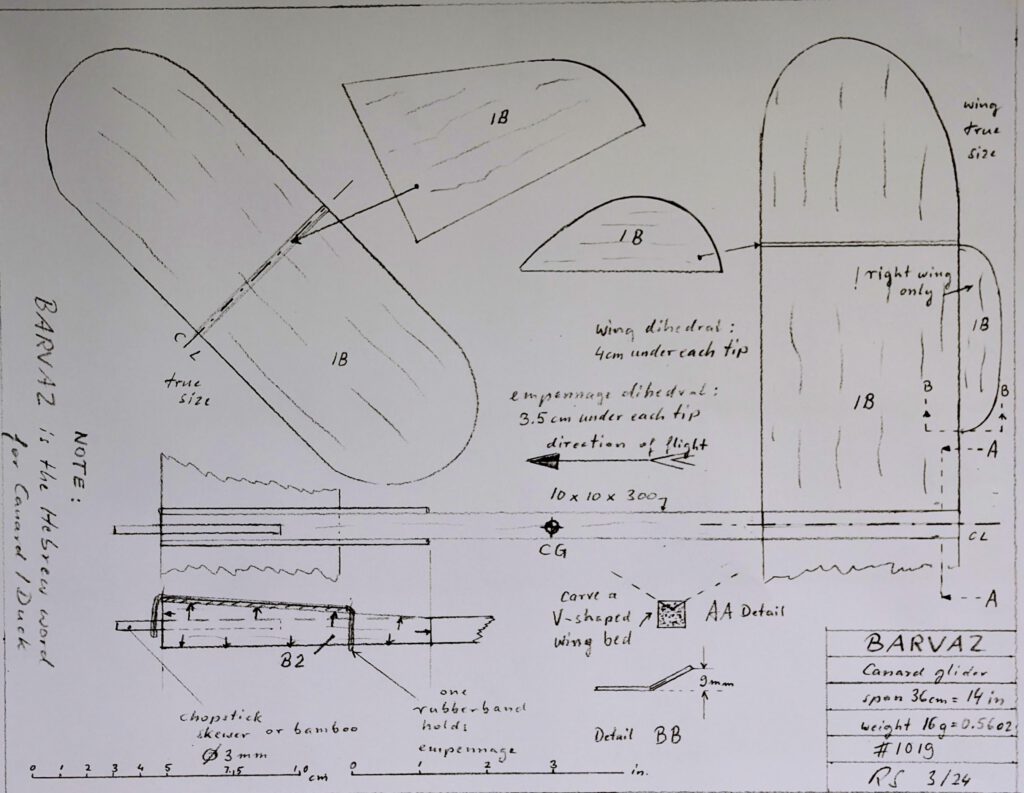 1B
1B
1B
wing
true
size
! right wing
only
1B
1B
wing dihedral:
4cm under each tip
empennage dihedral:
3.5cm under each tip
direction of flight
CL
true
size
1B
B
B
A
A
10 x 10 x 300
CG
CL
NOTE:
BARVAZ is the Hebrew word
for Canard / Duck
B2
chopstick
skewer or bamboo
Ø 3mm
one
rubberband
holds
empennage
carve a
V-shaped
wing bed
AA Detail
9mm
Detail BB
0 1 2 3 4 5 7.5 10 cm
0 1 2 3 in.
BARVAZ
Canard glider
span 36cm = 14 in
weight 16g = 0.56oz
#1019
RS 3/24